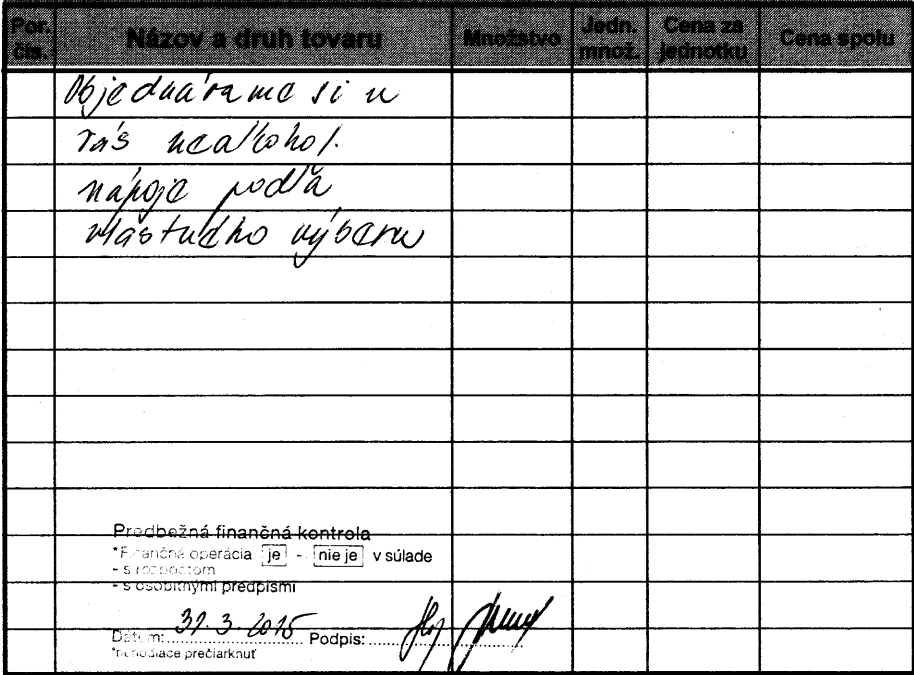 Por. čís. Názov a druh tovaru Množstvo Jedn. množ. Cena za jednotku Cena spolu
Objednávame si u
Vás nealkohol.
nápoje podľa
vlastného výberu
Predbežná finančná kontrola
*Finančná operácia je - nie je v súlade
- s rozpočtom
- s osobitnými predpismi
Dátum: 31.3.2015 Podpis:
*nehodiace prečiarknuť